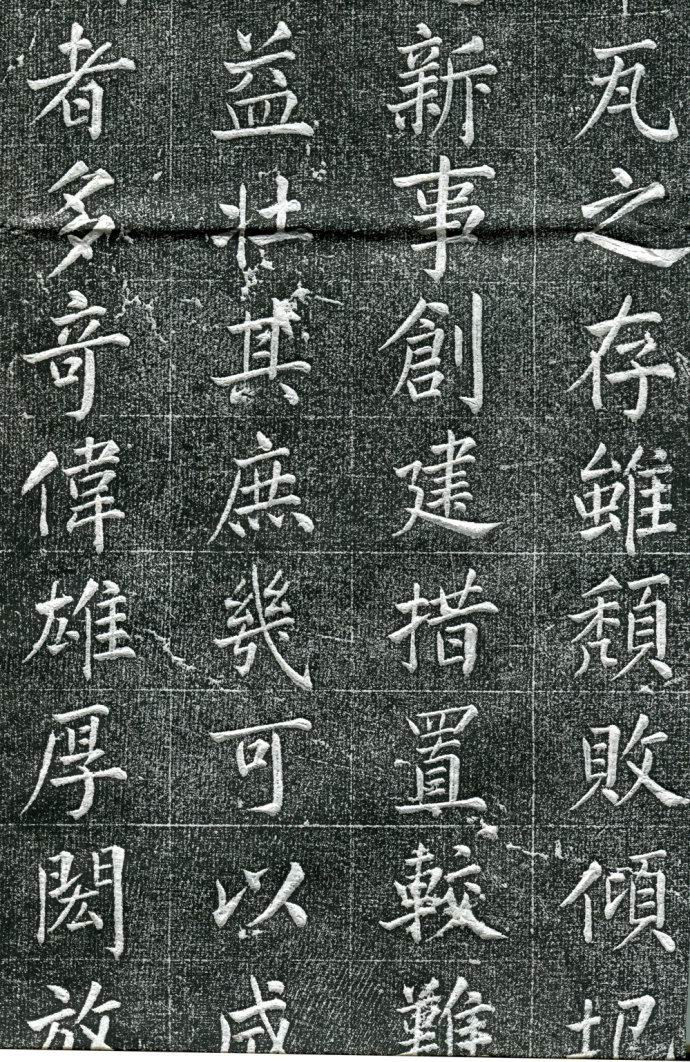 瓦之存雖頹敗傾圯
新事創建措置較難
益壯其庶幾可以成
者多奇偉雄厚閎放